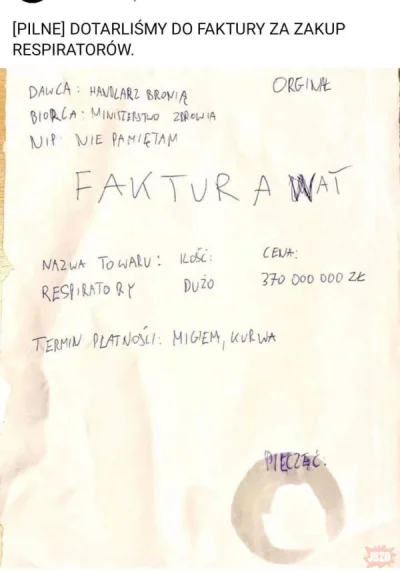 [PILNE] DOTARLIŚMY DO FAKTURY ZA ZAKUP
RESPIRATORÓW.
ORGINAŁ
DAWCA : HANDLARZ BRONIĄ
BIORCA : MINISTERSTWO ZDROWIA
NIP NIE PAMIĘTAM
FAKTURA WAT
NAZWA TOWARU : ILOŚĆ: CENA:
RESPIRATORY DUŻO 370 000 000 ZŁ
TERMIN PŁATNOŚCI : MIGIEM, KURWA
PIECZĘĆ:
JBZD